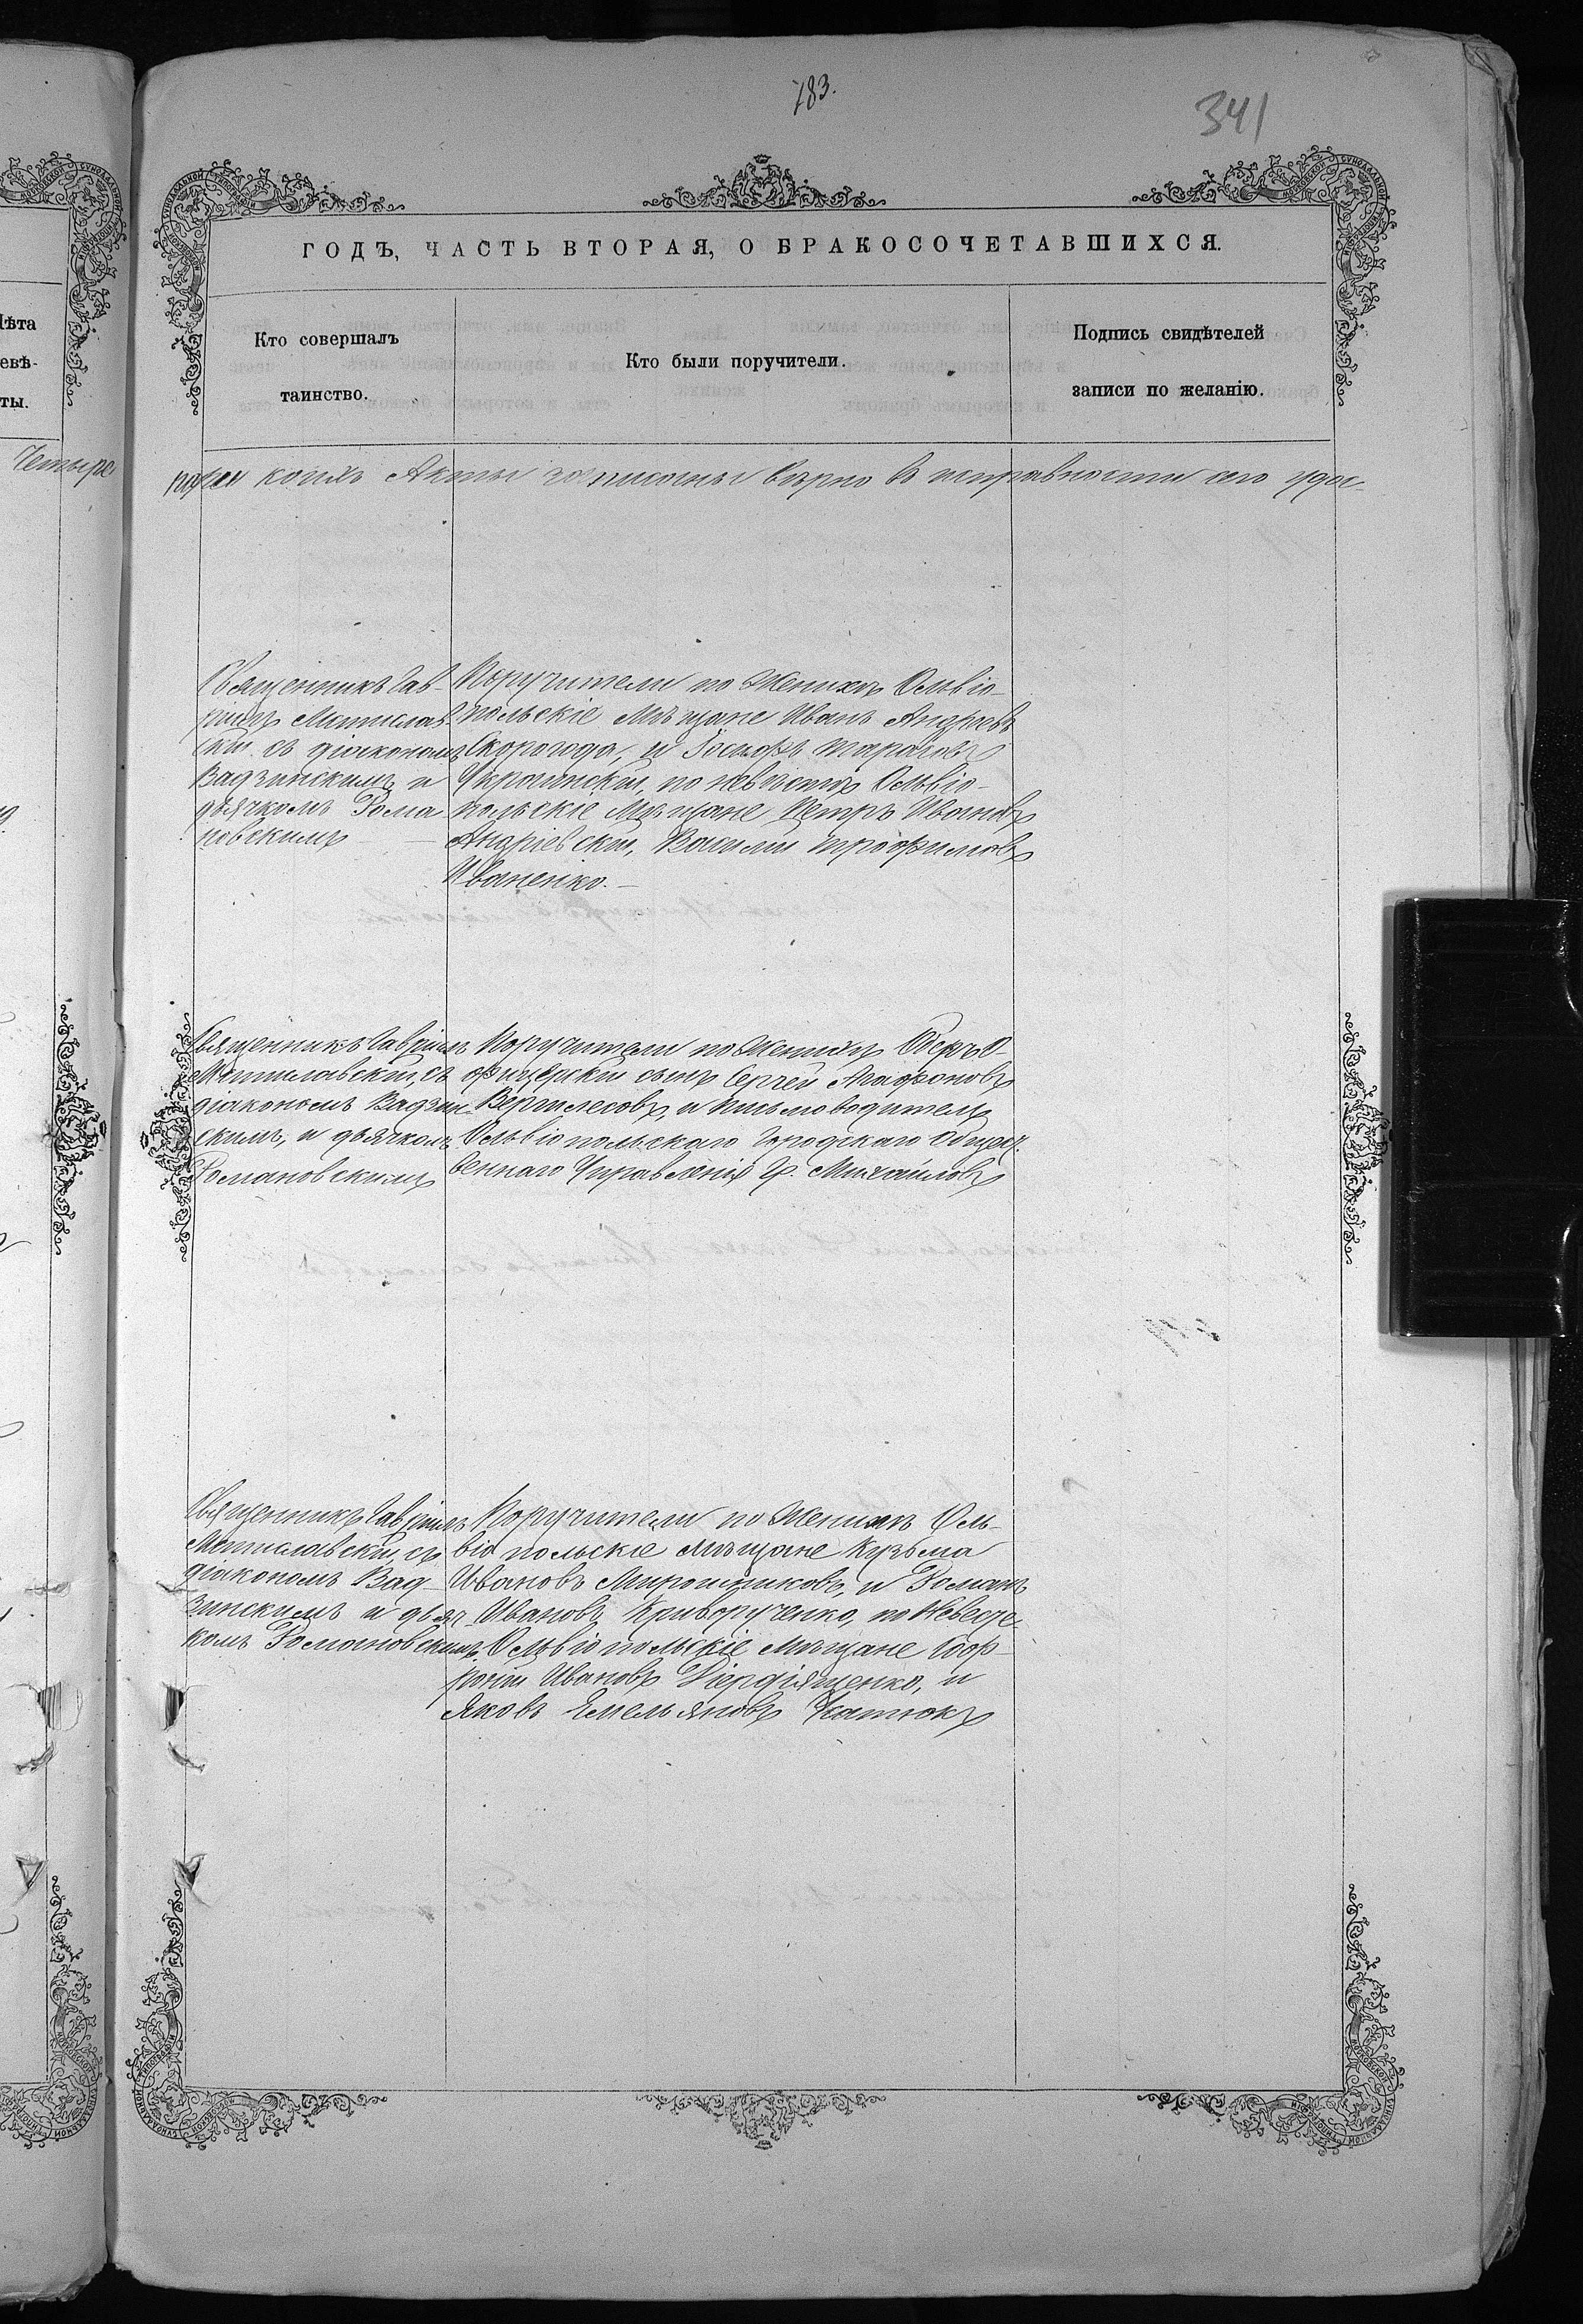 783.
341
ГОДЪ, ЧАСТЬ ВТОРАЯ, О БРАКОСОЧЕТАВШИХСЯ.
Кто совершалъ
таинство.
Кто были поручители.
Подпись свидѣтелей
записи по желанію.
Лѣта
евѣ-
ты.
Четыре
коихъ Акты записаны вѣрно въ исправности сего удос-
Священникъ Гав-
ріилъ Мстислав-
скій съ діакономъ
Вадзинскимъ и
дьячкомъ Рома
новскимъ
Поручители по Женихѣ Ольвіо-
польскіе Мѣщане Иванъ Андреевъ
Скорогода, и Іосифъ Тарасовъ
Украинскій, по невѣстѣ Ольвіо-
польскіе Мѣщане Петръ Ивановъ
Андріевскій, Василій Трофимовъ
Иваненко.
Священникъ Гавріилъ
Мстиславскій, съ
діакономъ Вадзин-
скимъ, и дьячкомъ
Романовскимъ
Поручители по Женихѣ Оберъ О-
фицерскій сынъ Сергѣй Агафоновъ
и письмоводитель
Ольвіопольскаго Городскаго Общест-
веннаго Управленія Михайловъ
Священникъ Гавріилъ
Мстиславскій, съ
діакономъ Вад-
зинскимъ и дьяч-
комъ Романовскимъ
Поручители по Женихѣ Оль-
віопольскіе мѣщане Кузьма
Ивановъ Мирошниковъ, и Романъ
Ивановъ Криворученко, по Невѣсте
Ольвіопольскіе Мѣщане Соф-
роній Ивановъ Дердіященко, и
Яковъ Емельяновъ